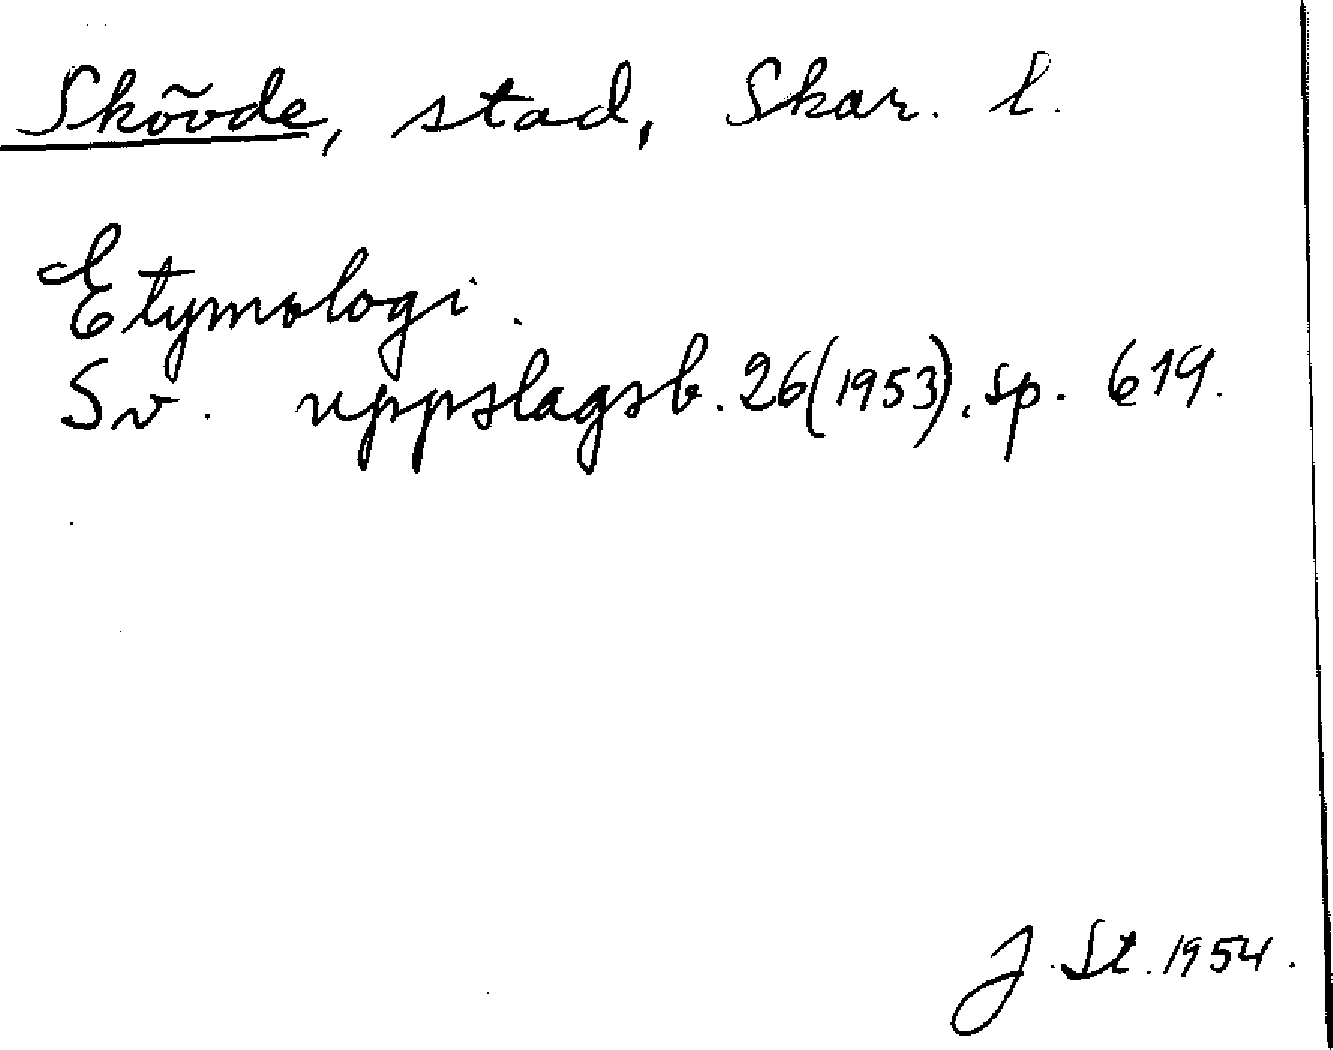 Skövde, stad, Skar. l.
Etymologi.
Sv. uppslagsb. 26(1953), sp. 619.
J. St. 1954.